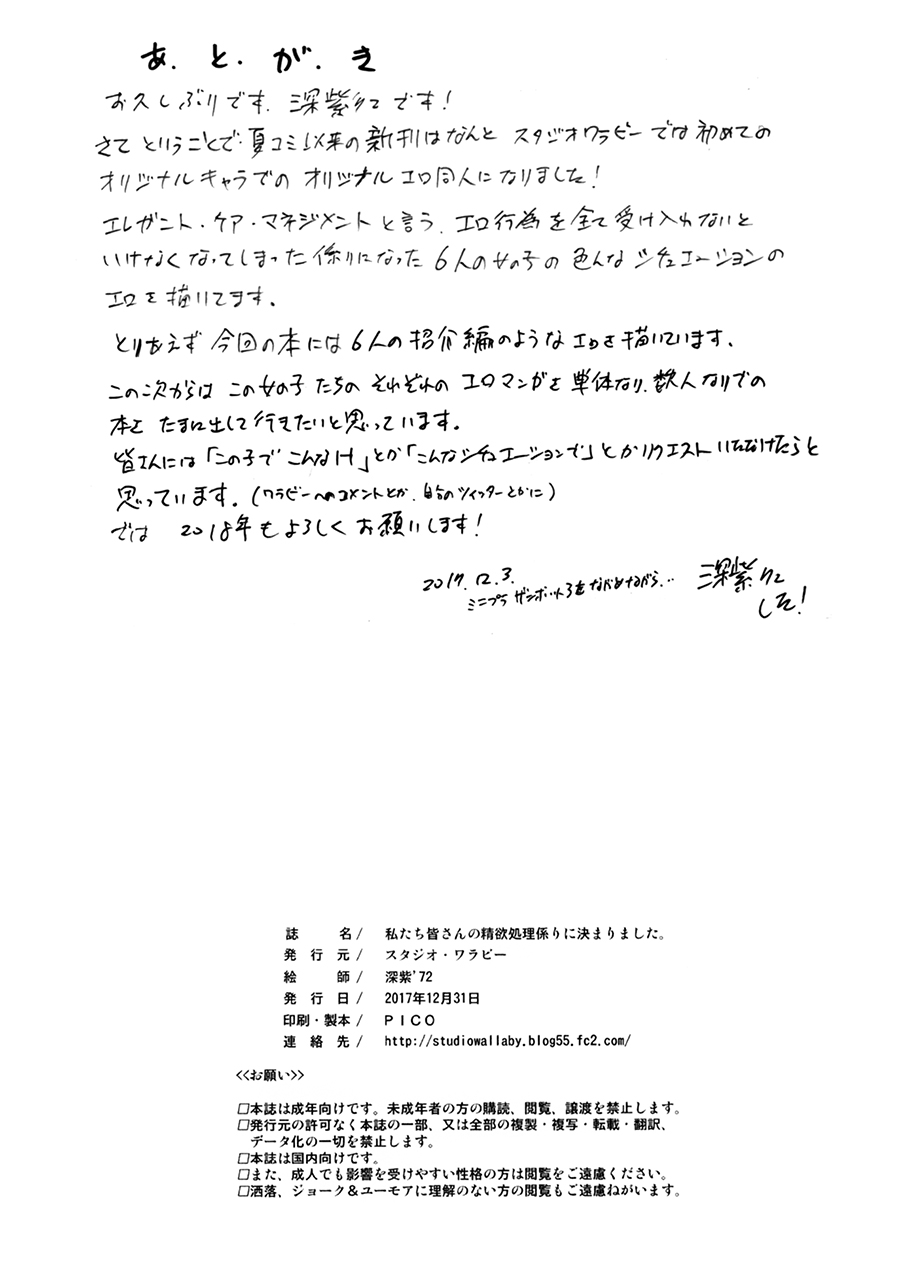 あ.と.が.き
お久しぶりです.深紫'72です!
さてということで.夏コミ以来の新刊はなんと スタジオワラビーでは初めての
オリジナルキャラでの オリジナルエロ同人になりました!
エレガント・ケア・マネジメントと言う.エロ行為を全て受け入れないと
いけなくなってしまった係りになった6人の女の子の色んなシチュエーションの
エロを描いてます.
とりあえず今回の本には6人の招介編のようなエロを描いています.
この次からはこの女の子たちのそれぞれのエロマンガを単体なり.数人なりでの
本を たまに出して行きたいと思っています.
皆さんには「この子でこんなH」とか「こんなシチュエーションで」とかリクエストいただけたらと
思っています.(ワラビーへのコメントとか.自分のツイッターとかに)
では 2018年もよろしくお願いします!
2017.12.3.
ミニプラ ザンボット3をながめながら...
深紫'72
でした!
誌名/ 私たち皆さんの精欲処理係りに決まりました。
発行元/ スタジオ・ワラビー
絵師/ 深紫'72
発行日/ 2017年12月31日
印刷・製本/ PICO
連絡先/ http://studiowallaby.blog55.fc2.com/
<<お願い>>
□本誌は成年向けです。未成年者の方の購読、閲覧、譲渡を禁止します。
□発行元の許可なく本誌の一部、又は全部の複製・複写・転載・翻訳、
データ化の一切を禁止します。
□本誌は国内向けです。
□また、成人でも影響を受けやすい性格の方は閲覧をご遠慮ください。
□洒落、ジョーク&ユーモアに理解のない方の閲覧もご遠慮ねがいます。